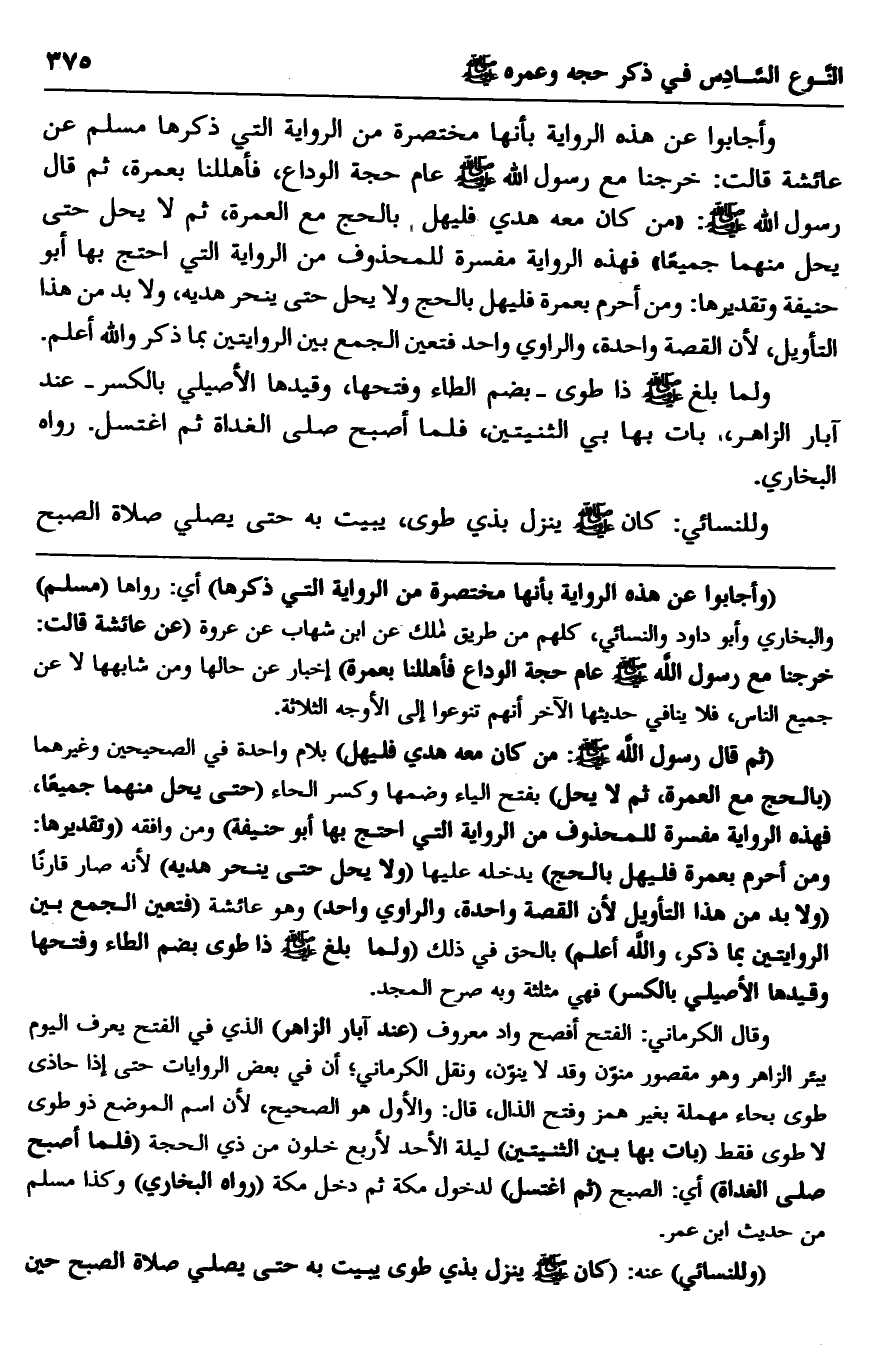 النَّوع السَّادِس في ذكر حجه وعمره ﷺ ٣٧٥
وأجابوا عن هذه الرواية بأنها مختصرة من الرواية التي ذكرها مسلم عن
عائشة قالت: خرجنا مع رسول الله ﷺ عام حجة الوداع، فأهللنا بعمرة، ثم قال
رسول الله ﷺ: «من كان معه هدي فليهل بالحج مع العمرة، ثم لا يحل حتى
يحل منهما جميعًا» فهذه الرواية مفسرة للمحذوف من الرواية التي احتج بها أبو
حنيفة وتقديرها: ومن أحرم بعمرة فليهل بالحج ولا يحل حتى ينحر هديه، ولا بد من هذا
التأويل، لأن القصة واحدة، والراوي واحد فتعين الجمع بين الروايتين بما ذكر والله أعلم.
ولما بلغ ﷺ ذا طوى ـ بضم الطاء وفتحها، وقيدها الأصيلي بالكسر ـ عند
آبار الزاهر،، بات بها بي الثنيتين، فلما أصبح صلى الغداة ثم اغتسل. رواه
البخاري.
وللنسائي: كان ﷺ ينزل بذي طوى، يبيت به حتى يصلي صلاة الصبح
(وأجابوا عن هذه الرواية بأنها مختصرة من الرواية التي ذكرها) أي: رواها (مسلم)
والبخاري وأبو داود والنسائي، كلهم من طريق ملك عن ابن شهاب عن عروة (عن عائشة قالت:
خرجنا مع رسول اللَّه ﷺ عام حجة الوداع فأهللنا بعمرة) إخبار عن حالها ومن شابهها لا عن
جميع الناس، فلا ينافي حديثها الآخر أنهم تنوعوا إلى الأوجه الثلاثة.
(ثم قال رسول اللَّه ﷺ: من كان معه هدي فليهل) بلام واحدة في الصحيحين وغيرهما
(بالحج مع العمرة، ثم لا يحل) بفتح الياء وضمها وكسر الحاء (حتى يحل منهما جميعًا،
فهذه الرواية مفسرة للمحذوف من الرواية التي احتج بها أبو حنيفة) ومن وافقه (وتقديرها:
ومن أحرم بعمرة فليهل بالحج) يدخله عليها (ولا يحل حتى ينحر هديه) لأنه صار قارنًا
(ولا بد من هذا التأويل لأن القصة واحدة، والراوي واحد) وهو عائشة (فتعين الجمع بين
الروايتين بما ذكر، واللَّه أعلم) بالحق في ذلك (ولما بلغ ﷺ ذا طوى بضم الطاء وفتحها
وقيدها الأصيلي بالكسر) فهي مثلثة وبه صرح المجد.
وقال الكرماني: الفتح أفصح واد معروف (عند آبار الزاهر) الذي في الفتح يعرف اليوم
ببئر الزاهر وهو مقصور منوّن وقد لا ينوّن، ونقل الكرماني؛ أن في بعض الروايات حتى إذا حاذى
طوى بحاء مهملة بغير همز وفتح الذال، قال: والأول هو الصحيح، لأن اسم الموضع ذو طوى
لا طوى فقط (بات بها بين الثنيتين) ليلة الأحد لأربع خلون من ذي الحجة (فلما أصبح
صلى الغداة) أي: الصبح (ثم اغتسل) لدخول مكة ثم دخل مكة (رواه البخاري) وكذا مسلم
من حديث ابن عمر.
(وللنسائي) عنه: (كان ﷺ ينزل بذي طوى يبيت به حتى يصلي صلاة الصبح حين